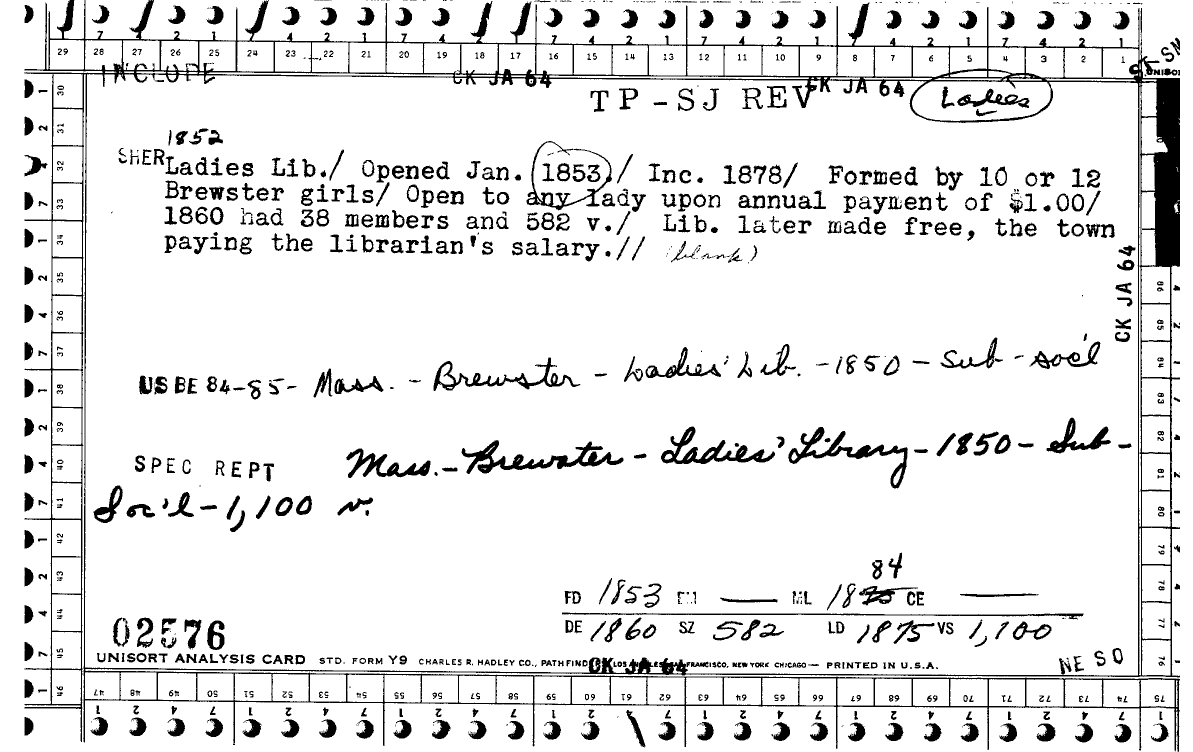 7 4 2 1 7 4 2 1 7 4 2 1 7 4 2 1 7 4 2 1 7 4 2 1
29 28 27 26 25 24 23 22 21 20 19 18 17 16 15 14 13 12 11 10 9 8 7 6 5 4 3 2 1
INCLOPE CK JA 64 CK JA 64 UNISOR
TP-SJ REV Ladies
1852
SHER Ladies Lib./ Opened Jan. 1853./ Inc. 1878/ Formed by 10 or 12
Brewster girls/ Open to any lady upon annual payment of $1.00/
1860 had 38 members and 582 v./ Lib. later made free, the town
paying the librarian's salary.// (blank)
CK JA 64
US BE 84-85- Mass. - Brewster - Ladies' Lib. - 1850 - Sub - soc'l
SPEC REPT Mass. - Brewster - Ladies' Library - 1850 - Sub -
Soc'l - 1,100 v.
84
FD 1853 EM — ML 1875 CE —
DE 1860 SZ 582 LD 1875 VS 1,100
02576
UNISORT ANALYSIS CARD STD. FORM Y9 CHARLES R. HADLEY CO., PATHFINDERS LOS ANGELES SAN FRANCISCO, NEW YORK CHICAGO — PRINTED IN U.S.A.
CK JA 64
NE SO
46 47 48 49 50 51 52 53 54 55 56 57 58 59 60 61 62 63 64 65 66 67 68 69 70 71 72 73 74 75